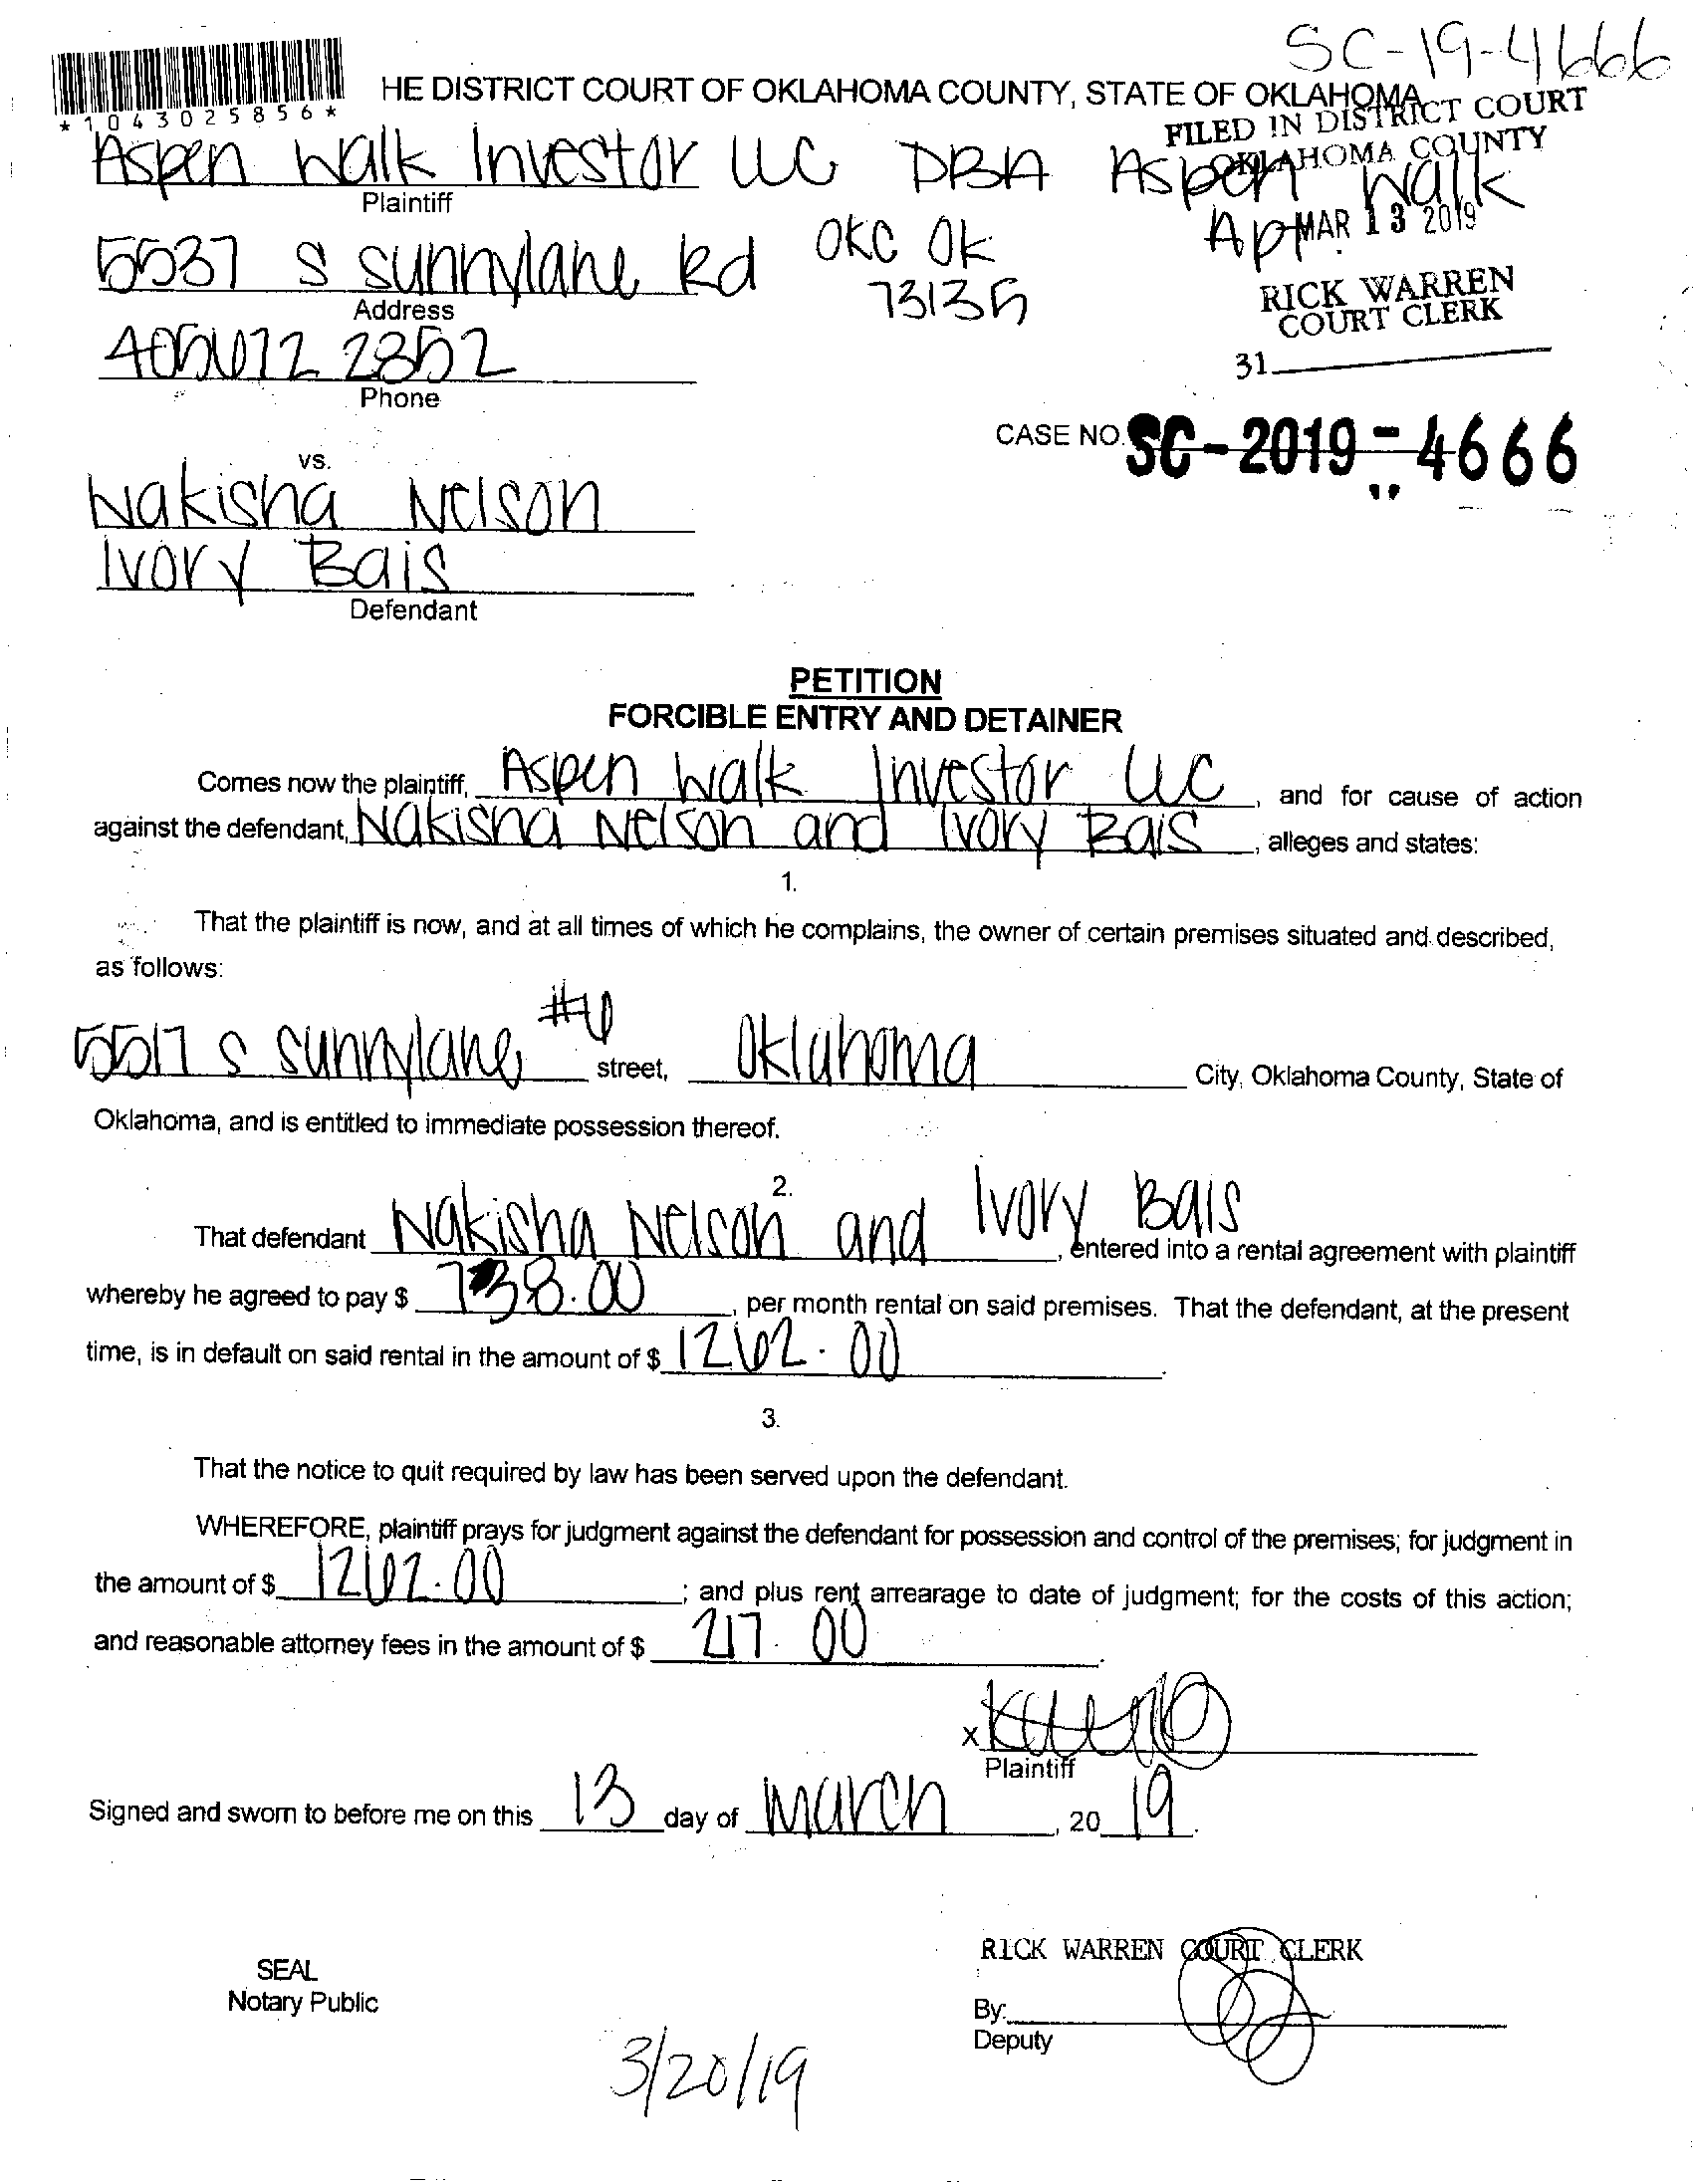 SC-19-4666
HE DISTRICT COURT OF OKLAHOMA COUNTY, STATE OF OKLAHOMA
*1043025856*
FILED IN DISTRICT COURT
OKLAHOMA COUNTY
Aspen Walk Investor LLC DBA Aspen Walk
Plaintiff
Apt
MAR 13 2019
5537 S Sunnylane Rd OKC OK
73135
Address
RICK WARREN
COURT CLERK
405 672 2352
31
Phone
CASE NO. SC-2019-4666
vs.
Nakisha Nelson
Ivory Bais
Defendant
PETITION
FORCIBLE ENTRY AND DETAINER
Comes now the plaintiff, Aspen Walk Investor LLC, and for cause of action
against the defendant, Nakisha Nelson and Ivory Bais, alleges and states:
1.
That the plaintiff is now, and at all times of which he complains, the owner of certain premises situated and described,
as follows:
5517 S Sunnylane #6 street, Oklahoma City, Oklahoma County, State of
Oklahoma, and is entitled to immediate possession thereof.
2.
That defendant Nakisha Nelson and Ivory Bais, entered into a rental agreement with plaintiff
whereby he agreed to pay $ 738.00, per month rental on said premises. That the defendant, at the present
time, is in default on said rental in the amount of $ 1262.00.
3.
That the notice to quit required by law has been served upon the defendant.
WHEREFORE, plaintiff prays for judgment against the defendant for possession and control of the premises; for judgment in
the amount of $ 1262.00; and plus rent arrearage to date of judgment; for the costs of this action;
and reasonable attorney fees in the amount of $ 217.00.
x
Plaintiff
Signed and sworn to before me on this 13 day of March, 20 19.
RICK WARREN COURT CLERK
SEAL
Notary Public
By:
Deputy
3/20/19